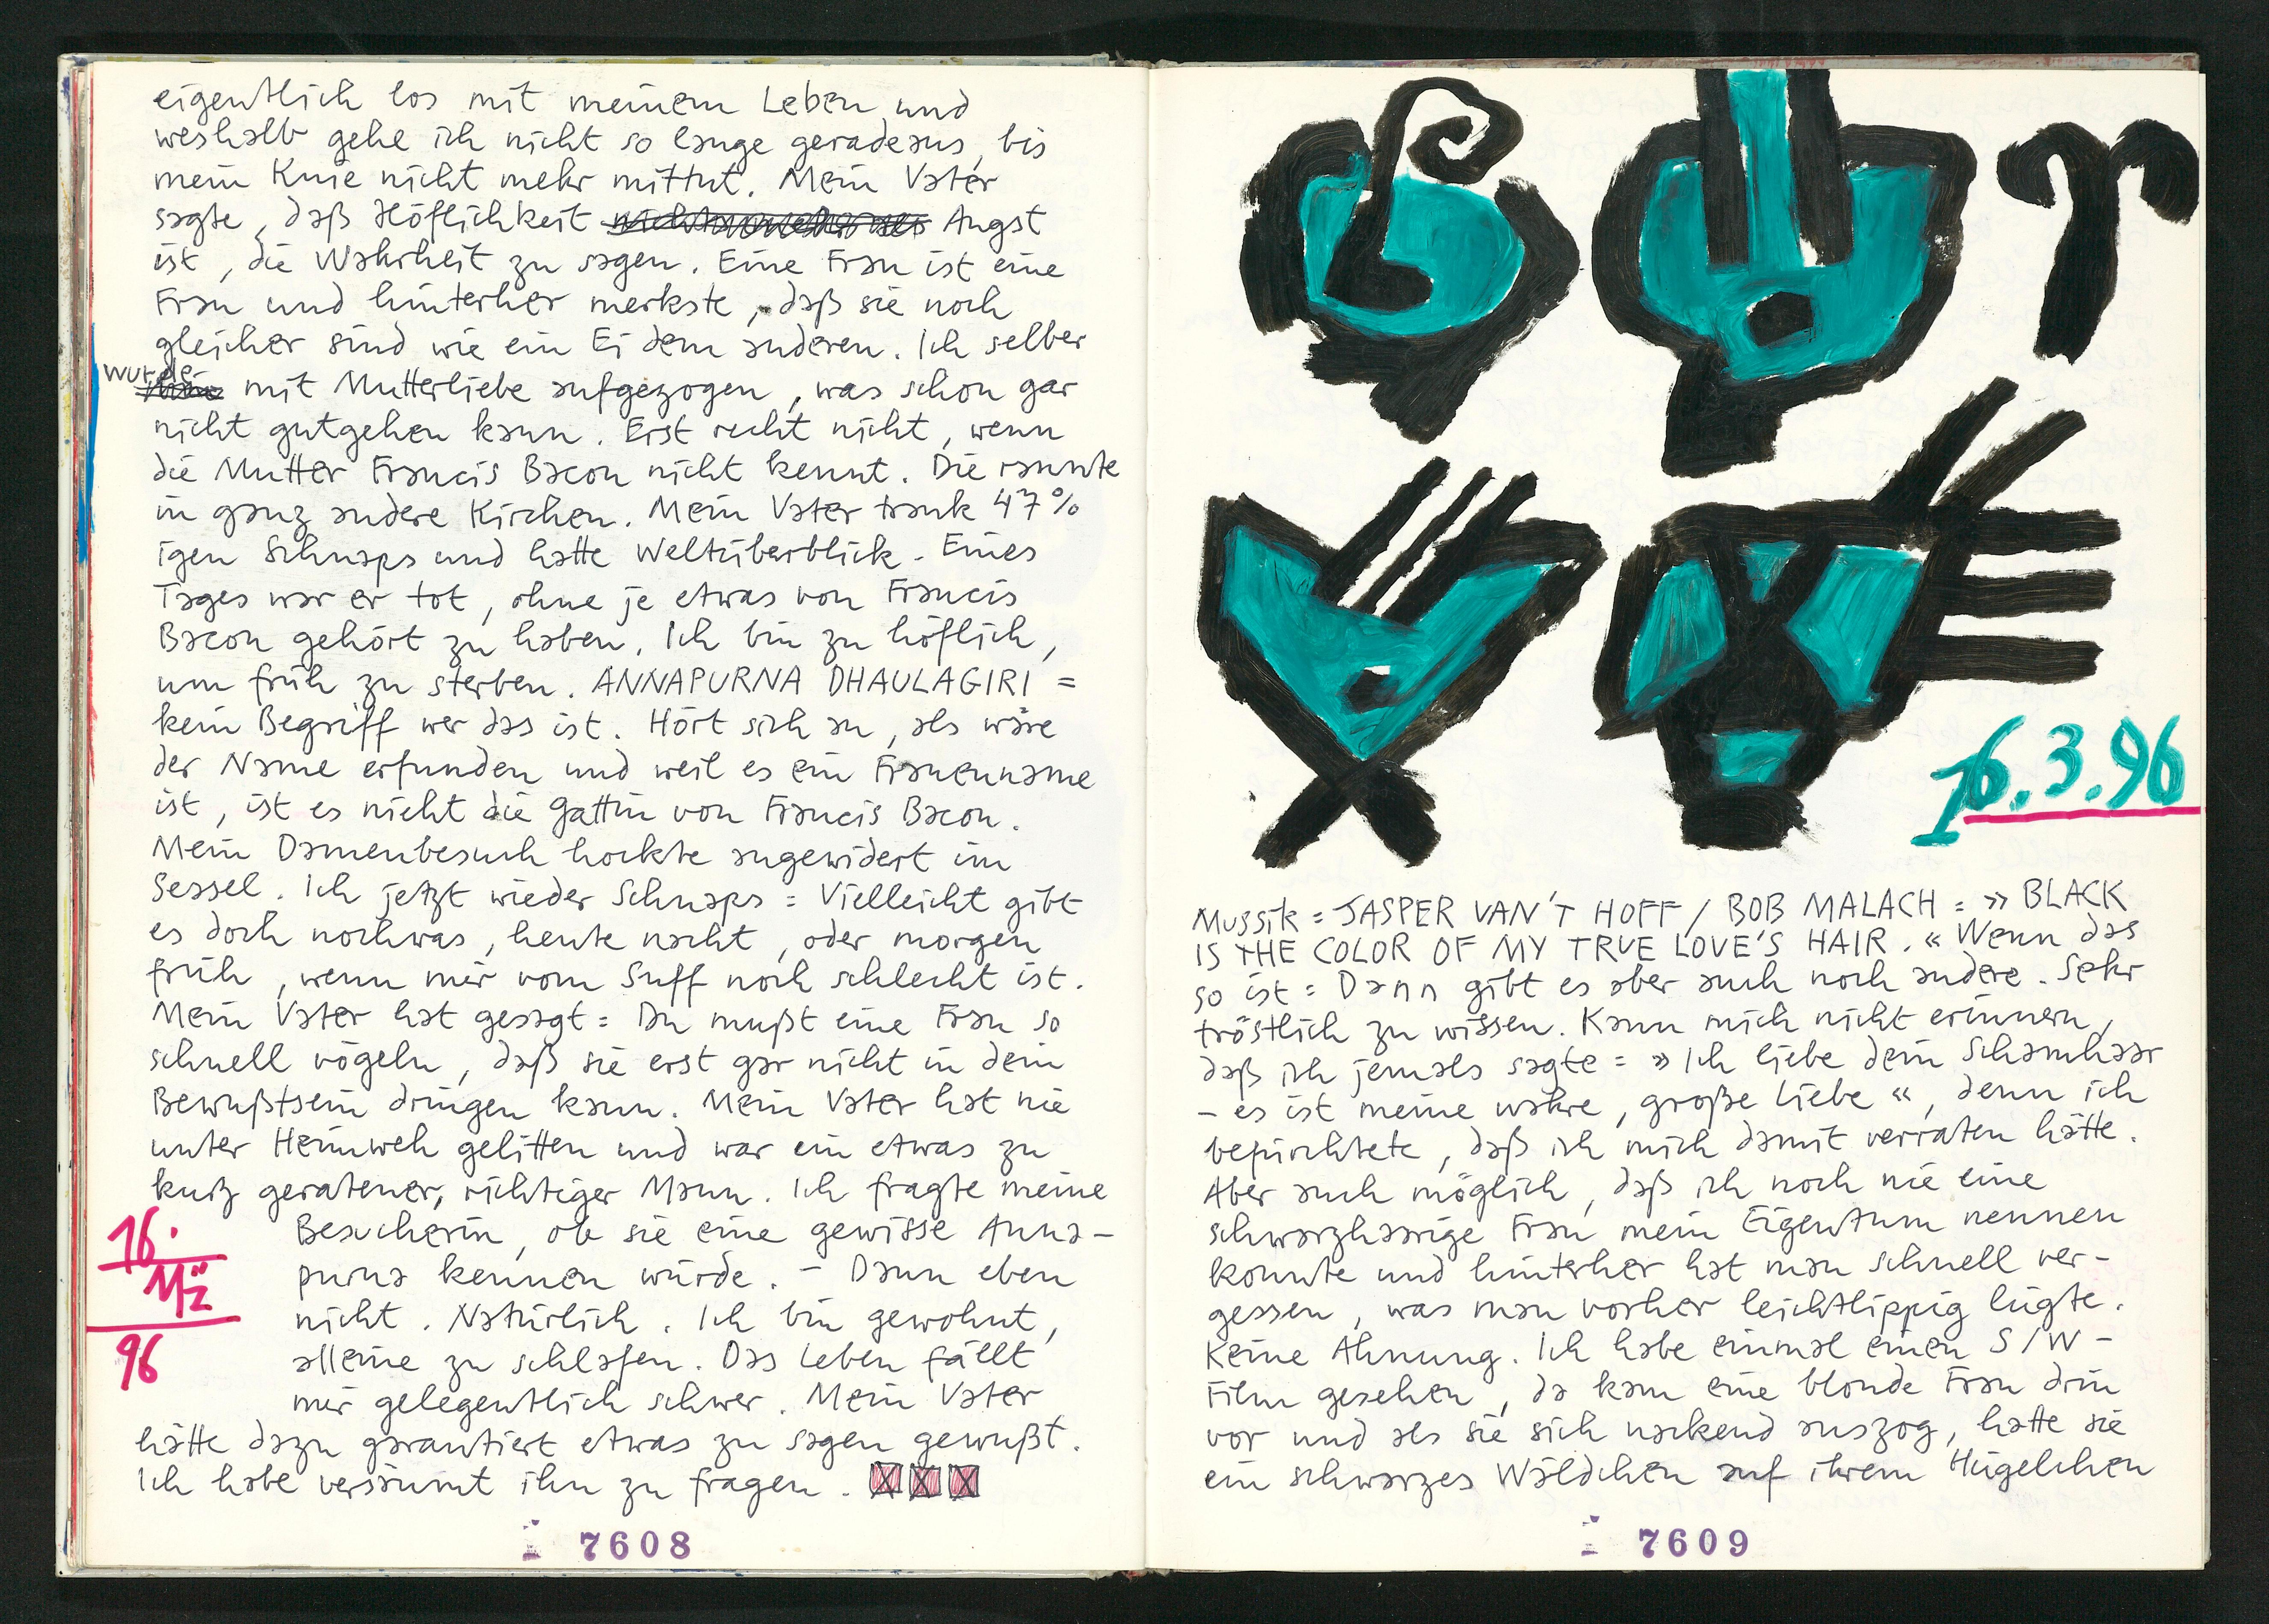 eigentlich los mit meinem Leben und
weshalb gehe ich nicht so lange geradeaus, bis
mein Knie nicht mehr mittut. Mein Vater
sagte, daß Höflichkeit Angst
ist, die Wahrheit zu sagen. Eine Frau ist eine
Frau und hinterher merkste, daß sie noch
gleicher sind wie ein Ei dem anderen. Ich selber
wurde mit Mutterliebe aufgezogen, was schon gar
nicht gutgehen kann. Erst recht nicht, wenn
die Mutter Francis Bacon nicht kennt. Die rannte
in ganz andere Kirchen. Mein Vater trank 47%
igen Schnaps und hatte Weltüberblick. Eines
Tages war er tot, ohne je etwas von Francis
Bacon gehört zu haben. Ich bin zu höflich,
um früh zu sterben. ANNAPURNA DHAULAGIRI =
kein Begriff wer das ist. Hört sich an, als wäre
der Name erfunden und weil es ein Frauenname
ist, ist es nicht die Gattin von Francis Bacon.
Mein Damenbesuch hockte angewidert im
Sessel. Ich jetzt wieder Schnaps = Vielleicht gibt
es doch nochwas, heute nacht, oder morgen
früh, wenn mir vom Suff noch schlecht ist.
Mein Vater hat gesagt = Du mußt eine Frau so
schnell vögeln, daß sie erst gar nicht in dein
Bewußtsein dringen kann. Mein Vater hat nie
unter Heimweh gelitten und war ein etwas zu
kurz geratener, richtiger Mann. Ich fragte meine
Besucherin, ob sie eine gewisse Anna-
purna kennen würde. – Dann eben
nicht. Natürlich. Ich bin gewohnt,
alleine zu schlafen. Das Leben fällt
mir gelegentlich schwer. Mein Vater
hätte dazu garantiert etwas zu sagen gewußt.
Ich habe versäumt ihn zu fragen.
16.
Mäz
96
7608
16.3.96
Mussik = JASPER VAN'T HOFF / BOB MALACH = »BLACK
IS THE COLOR OF MY TRUE LOVE'S HAIR.« Wenn das
so ist = Dann gibt es aber auch noch andere. Sehr
tröstlich zu wissen. Kann mich nicht erinnern,
daß ich jemals sagte = »Ich liebe dein Schamhaar
– es ist meine wahre, große Liebe«, denn ich
befürchtete, daß ich mich damit verraten hätte.
Aber auch möglich, daß ich noch nie eine
schwarzhaarige Frau mein Eigentum nennen
konnte und hinterher hat man schnell ver-
gessen, was man vorher leichtlippig lügte.
Keine Ahnung. Ich habe einmal einen S/W-
Film gesehen, da kam eine blonde Frau drin
vor und als sie sich nackend auszog, hatte sie
ein schwarzes Wäldchen auf ihrem Hügelchen
7609